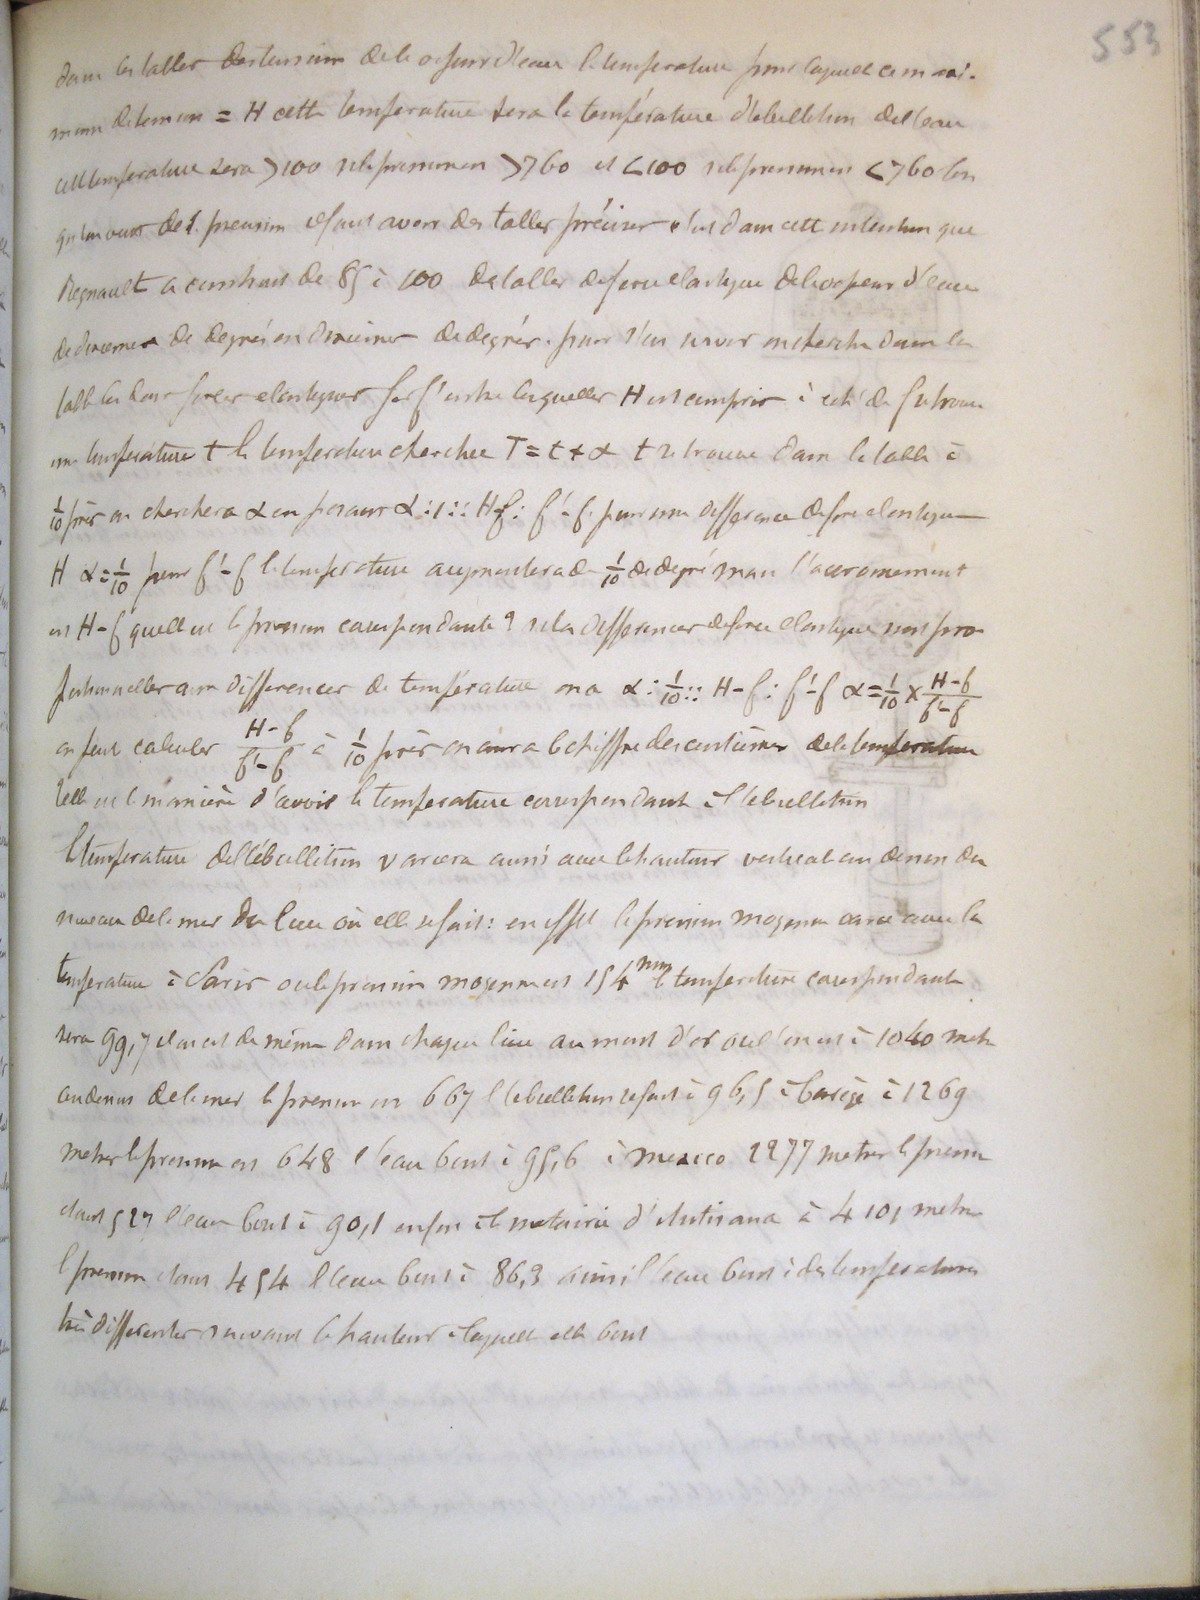 553
dans les tables des tensions de la vapeur d'eau la température pour laquelle ce maxi-
mum de tension = H cette température sera la température d'ébullition de l'eau
cette température sera >100 si la pression est >760 et <100 si la pression est <760 lors
qu'on veut de la précision il faut avoir des tables précises c'est dans cette intention que
Regnault a construit de 85 à 100 des tables de force élastique de la vapeur d'eau
de dixièmes de degrés en dixièmes de degrés. pour s'en servir on cherche dans la
table les deux forces élastiques f et f' entre lesquelles H est compris à côté de f se trouve
une température t la température cherchée T = t + α t se trouve dans la table à
1/10 près on cherchera α en posant α : 1 :: H-f : f'-f. pour une différence de force élastique
H α = 1/10 pour f'-f la température augmentera de 1/10 de degré mais l'accroissement
est H-f quelle est la pression correspondante ? si les différences de force élastique sont pro
portionnelles aux différences de température on a α : 1/10 :: H-f : f'-f α = 1/10 × (H-f)/(f'-f)
on peut calculer (H-f)/(f'-f) à 1/10 près on aura le chiffre des centièmes de la température
telle est la manière d'avoir la température correspondant à l'ébullition
la température de l'ébullition variera aussi avec la hauteur verticale au dessus du
niveau de la mer du lieu où elle se fait : en effet la pression moyenne varie avec la
température à Paris où la pression moyenne est 754mm la température correspondante
sera 99,7 il en est de même dans chaque lieu au mont d'or où l'on est à 1040 metr
au dessus de la mer la pression est 667 l'ébullition se fait à 96,5 à Barège à 1269
metres la pression est 648 l'eau bout à 95,6 à mexico 2277 metres la pression
étant 527 l'eau bout à 90,1 enfin à la métairie d'Antisana à 4101 metres
la pression étant 454 l'eau bout à 86,3 ainsi l'eau bout à des températures
très différentes suivant la hauteur à laquelle elle bout